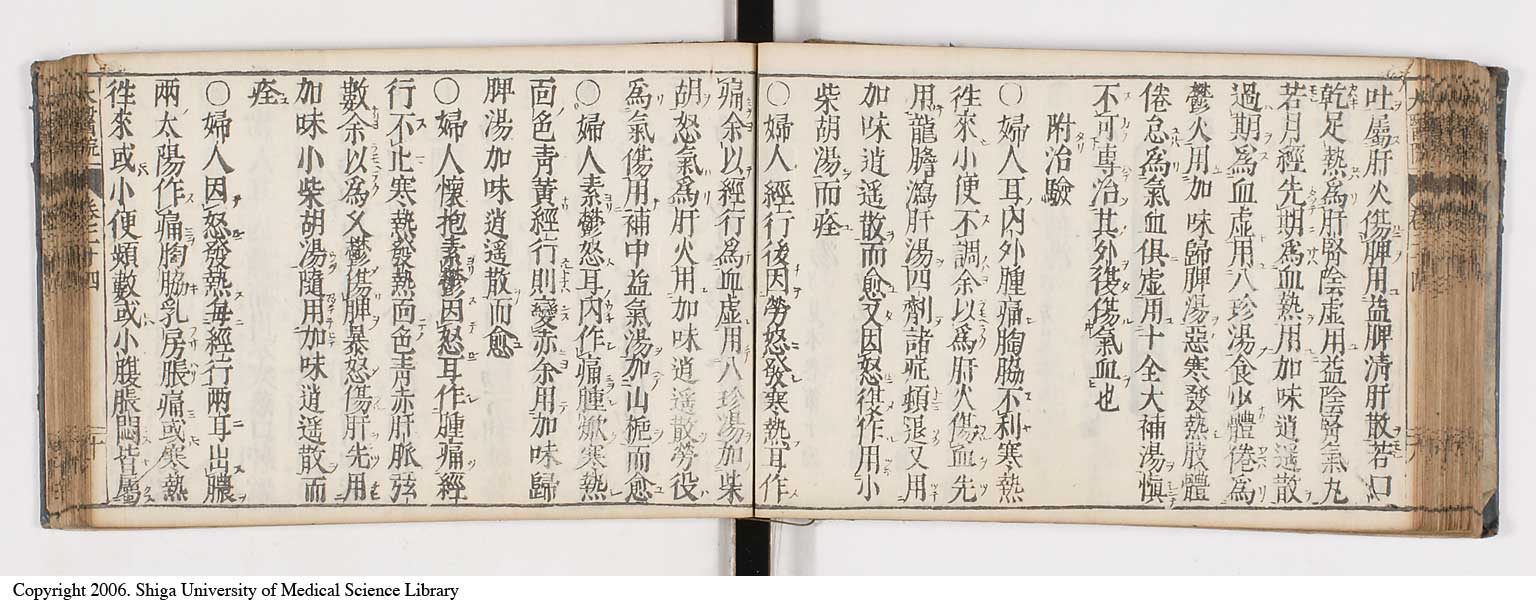 吐屬肝火傷脾用益脾清肝散若口
乾足熱爲肝腎陰虚用益陰腎氣丸
若月經先期爲血熱用加味逍遥散
過期爲血虚用八珍湯食少體倦爲
鬱火用加味歸脾湯惡寒發熱肢體
倦怠爲氣血俱虚用十全大補湯愼
不可專治其外復傷氣血也
附治驗
○婦人耳內外腫痛胸脇不利寒熱
徃來小便不調余以爲肝火傷血先
用龍膽瀉肝湯四劑諸症頓退又用
加味逍遥散而愈又因怒復作用小
柴胡湯而痊
○婦人經行後因勞怒發寒熱耳作
痛余以經行爲血虚用八珍湯加柴
胡怒氣爲肝火用加味逍遥散勞役
爲氣傷用補中益氣湯加山梔而愈
○婦人素鬱怒耳內作痛腫焮寒熱
面色靑黃經行則變赤余用加味歸
脾湯加味逍遥散而愈
○婦人懷抱素鬱因怒耳作腫痛經
行不止寒熱發熱面色靑赤肝脈弦
數余以爲久鬱傷脾暴怒傷肝先用
加味小柴胡湯隨用加味逍遥散而
痊
○婦人因怒發熱每經行兩耳出膿
兩太陽作痛胸脇乳房脹痛或寒熱
徃來或小便頻數或小腹脹悶皆屬
卷三十四